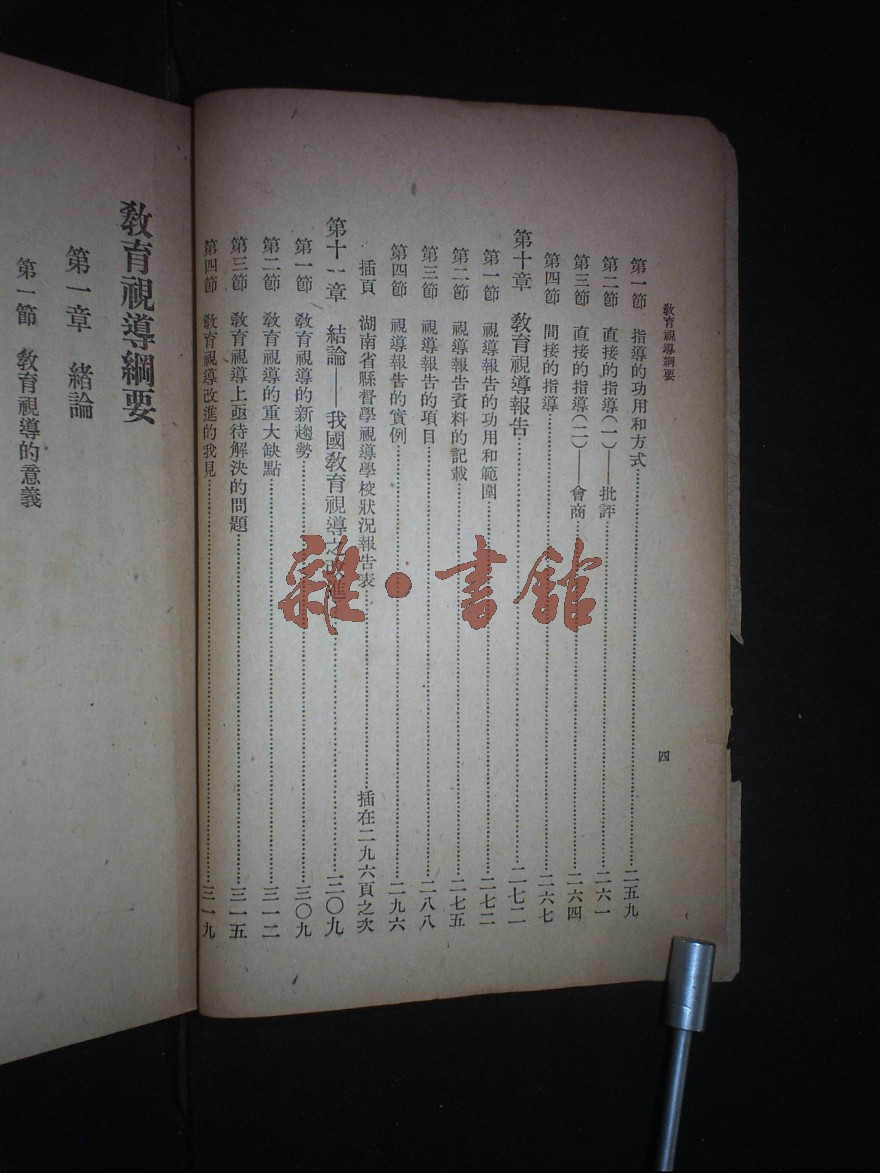 教育視導綱要
四
第一節 指導的功用和方式……二五九
第二節 直接的指導(一)——批評……二六一
第三節 直接的指導(二)——會商……二六四
第四節 間接的指導……二六七
第十章 教育視導報告……二七二
第一節 視導報告的功用和範圍……二七二
第二節 視導報告資料的記載……二七五
第三節 視導報告的項目……二八八
第四節 視導報告的實例……二九六
插頁 湖南省縣督學視導學校狀況報告表……插在二九六頁之次
第十一章 結論——我國教育視導之改進……三〇九
第一節 教育視導的新趨勢……三〇九
第二節 教育視導的重大缺點……三一二
第三節 教育視導上亟待解決的問題……三一五
第四節 教育視導改進的我見……三一九
教育視導綱要
第一章 緒論
第一節 教育視導的意義
雜·書館